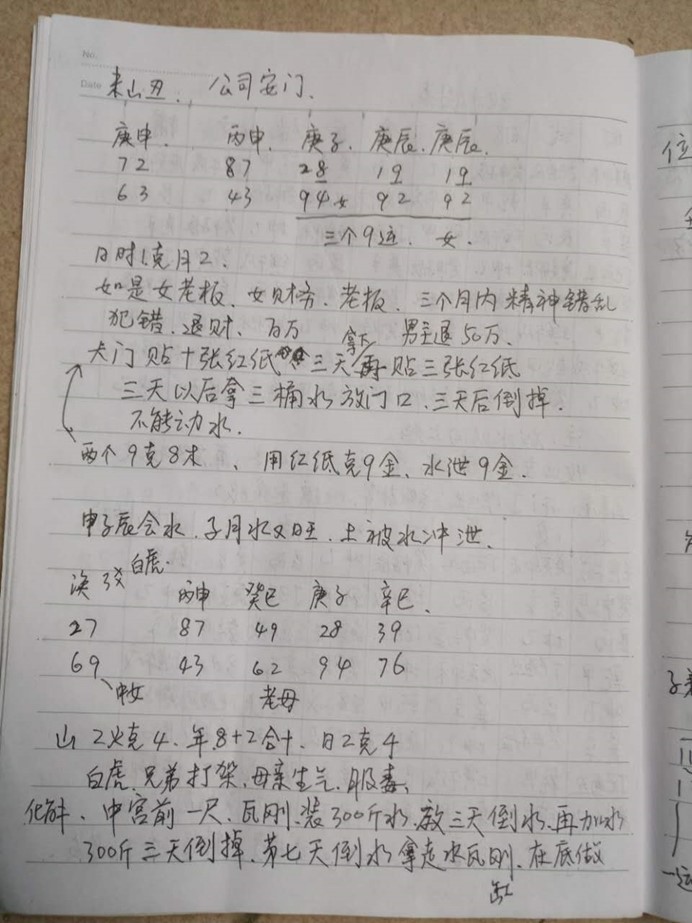 No.
Date 来山丑. 公司安门.
庚申. 丙申. 庚子. 庚辰. 庚辰.
72 87 28 19 19
63 43 94女 92 92
三个9运. 女.
日时1克月2.
如是女老板、女财务、老板、三个月内精神错乱
犯错、退财、百万 男主退50万.
大门贴十张红纸 三天拿下再贴三张红纸
三天以后拿三桶水放门口、三天后倒掉.
不能动水.
两个9克8木、用红纸克9金、水泄9金.
申子辰会水、子月水又旺、土被水冲泄、
涣 白虎.
丙申 癸巳 庚子 辛巳、
27 87 49 28 39
69 43 62 94 76
中女 老母
山2火克4、年8+2合十、日2克4
白虎、兄弟打架、母亲生气、服毒、
化解、中宫前一尺、瓦刚、装300斤水、放三天倒水、再加水
300斤三天倒掉、第七天倒水拿走水瓦刚、在底做
缸
位
一运